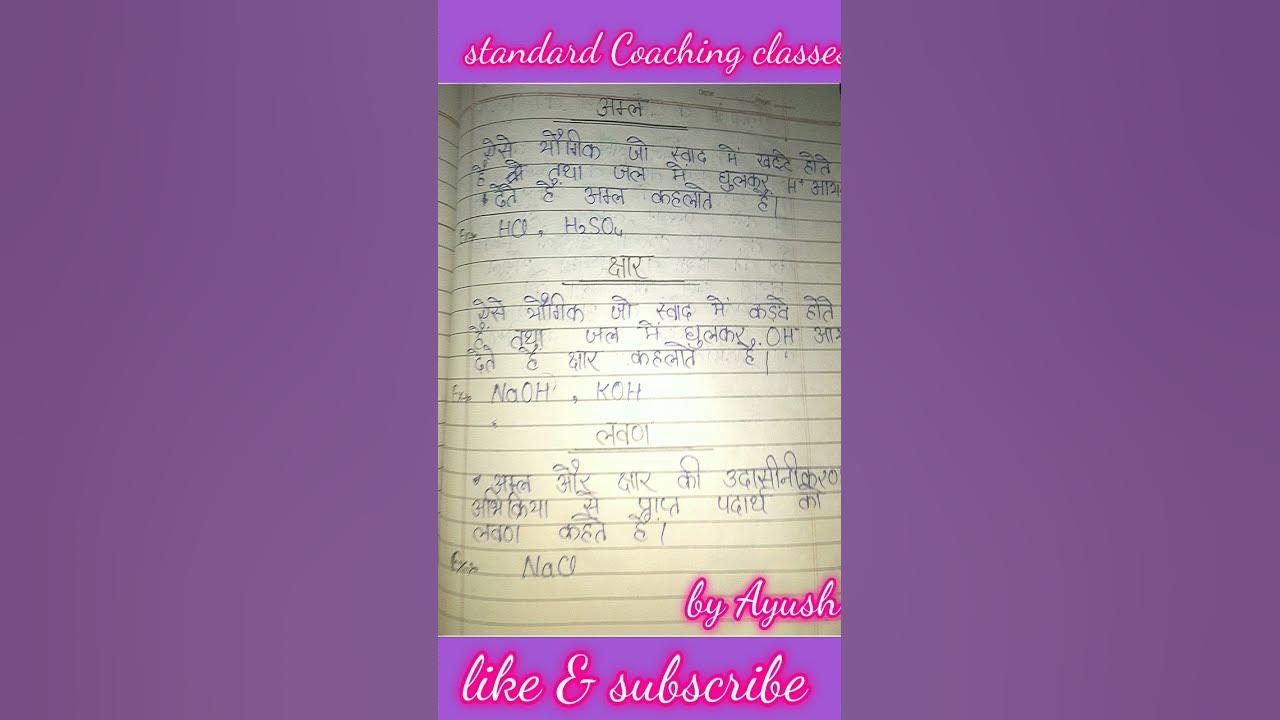 standard Coaching classes
अम्ल
ऐसे यौगिक जो स्वाद में खट्टे होते
हैं तथा जल में घुलकर H+ आय
देते हैं अम्ल कहलाते हैं।
Ex:- HCl, H₂SO₄
क्षार
ऐसे यौगिक जो स्वाद में कड़वे होते
हैं तथा जल में घुलकर OH⁻ आय
देते हैं क्षार कहलाते हैं।
Ex:- NaOH, KOH
लवण
• अम्ल और क्षार की उदासीनीकरण
अभिक्रिया से प्राप्त पदार्थ को
लवण कहते हैं।
Ex:- NaCl
by Ayush
like & subscribe